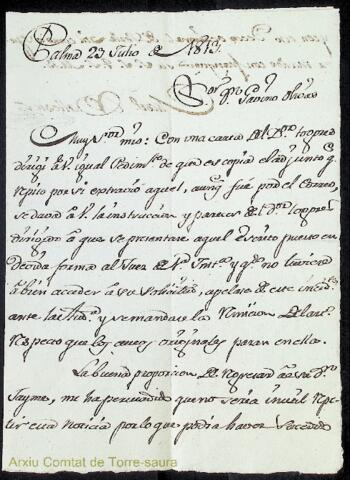 Palma 23 Julio de 1813.
Sor. Dn. Gavino Oliver
Muy Sor. mio: Con una carta del Dr. Togores
dirigi a V. igual Pedimto. de que es copia el adjunto q
repito por si extravió aquel, aunq. fué por el Correo,
se dava a V. la instruccion y parecer del Dr. Togores
dirigido a que se presentare aquel Escrito puesto en
devida forma al Juez de 1ª Inta. y qe. no
a bien acceder a su solicitud, apelare de este
ante la Auda. y se mandare la Remision de los
Respecto que los autos originales paran en ella.
La buena proporcion del Regreso a esa de Dn.
Jayme, me ha persuadido que no seria inutil Repe-
tir esta Noticia por lo que podia haver sucedido
Arxiu Comtat de Torre-saura